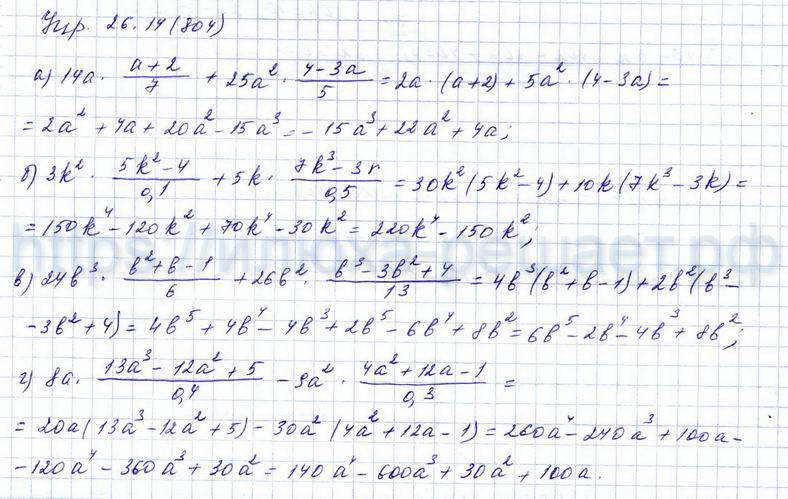 Упр. 26.14 (804)
а) 14a · (a+2)/7 + 25a² · (4-3a)/5 = 2a · (a+2) + 5a² · (4-3a) =
= 2a² + 4a + 20a² - 15a³ = -15a³ + 22a² + 4a;
б) 3k² · (5k²-4)/0,1 + 5k · (7k³-3r)/0,5 = 30k²(5k²-4) + 10k(7k³-3k) =
= 150k⁴ - 120k² + 70k⁴ - 30k² = 220k⁴ - 150k²;
в) 24b³ · (b²+b-1)/6 + 26b² · (b³-3b²+4)/13 = 4b³(b²+b-1) + 2b²(b³-
-3b²+4) = 4b⁵ + 4b⁴ - 4b³ + 2b⁵ - 6b⁴ + 8b² = 6b⁵ - 2b⁴ - 4b³ + 8b²;
г) 8a · (13a³-12a²+5)/0,4 - 9a² · (4a²+12a-1)/0,3 =
= 20a(13a³-12a²+5) - 30a²(4a²+12a-1) = 260a⁴ - 240a³ + 100a -
- 120a⁴ - 360a³ + 30a² = 140a⁴ - 600a³ + 30a² + 100a.